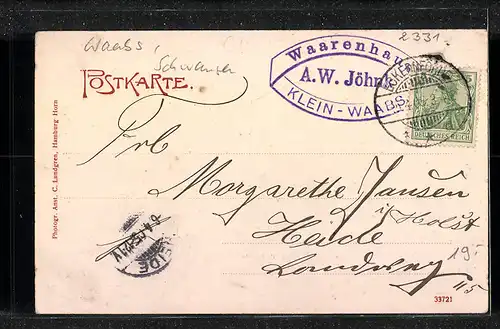 Waabs,
Schwansen
2331
POSTKARTE.
Waarenhaus
A.W. Jöhnk
KLEIN-WAABS.
DEUTSCHES REICH
Photogr. Anst. C. Landgren, Hamburg Horn
Frl.
Morgarethe Jansen
i/Holst
Heide
Landweg 15
19.-
HEIDE
33721